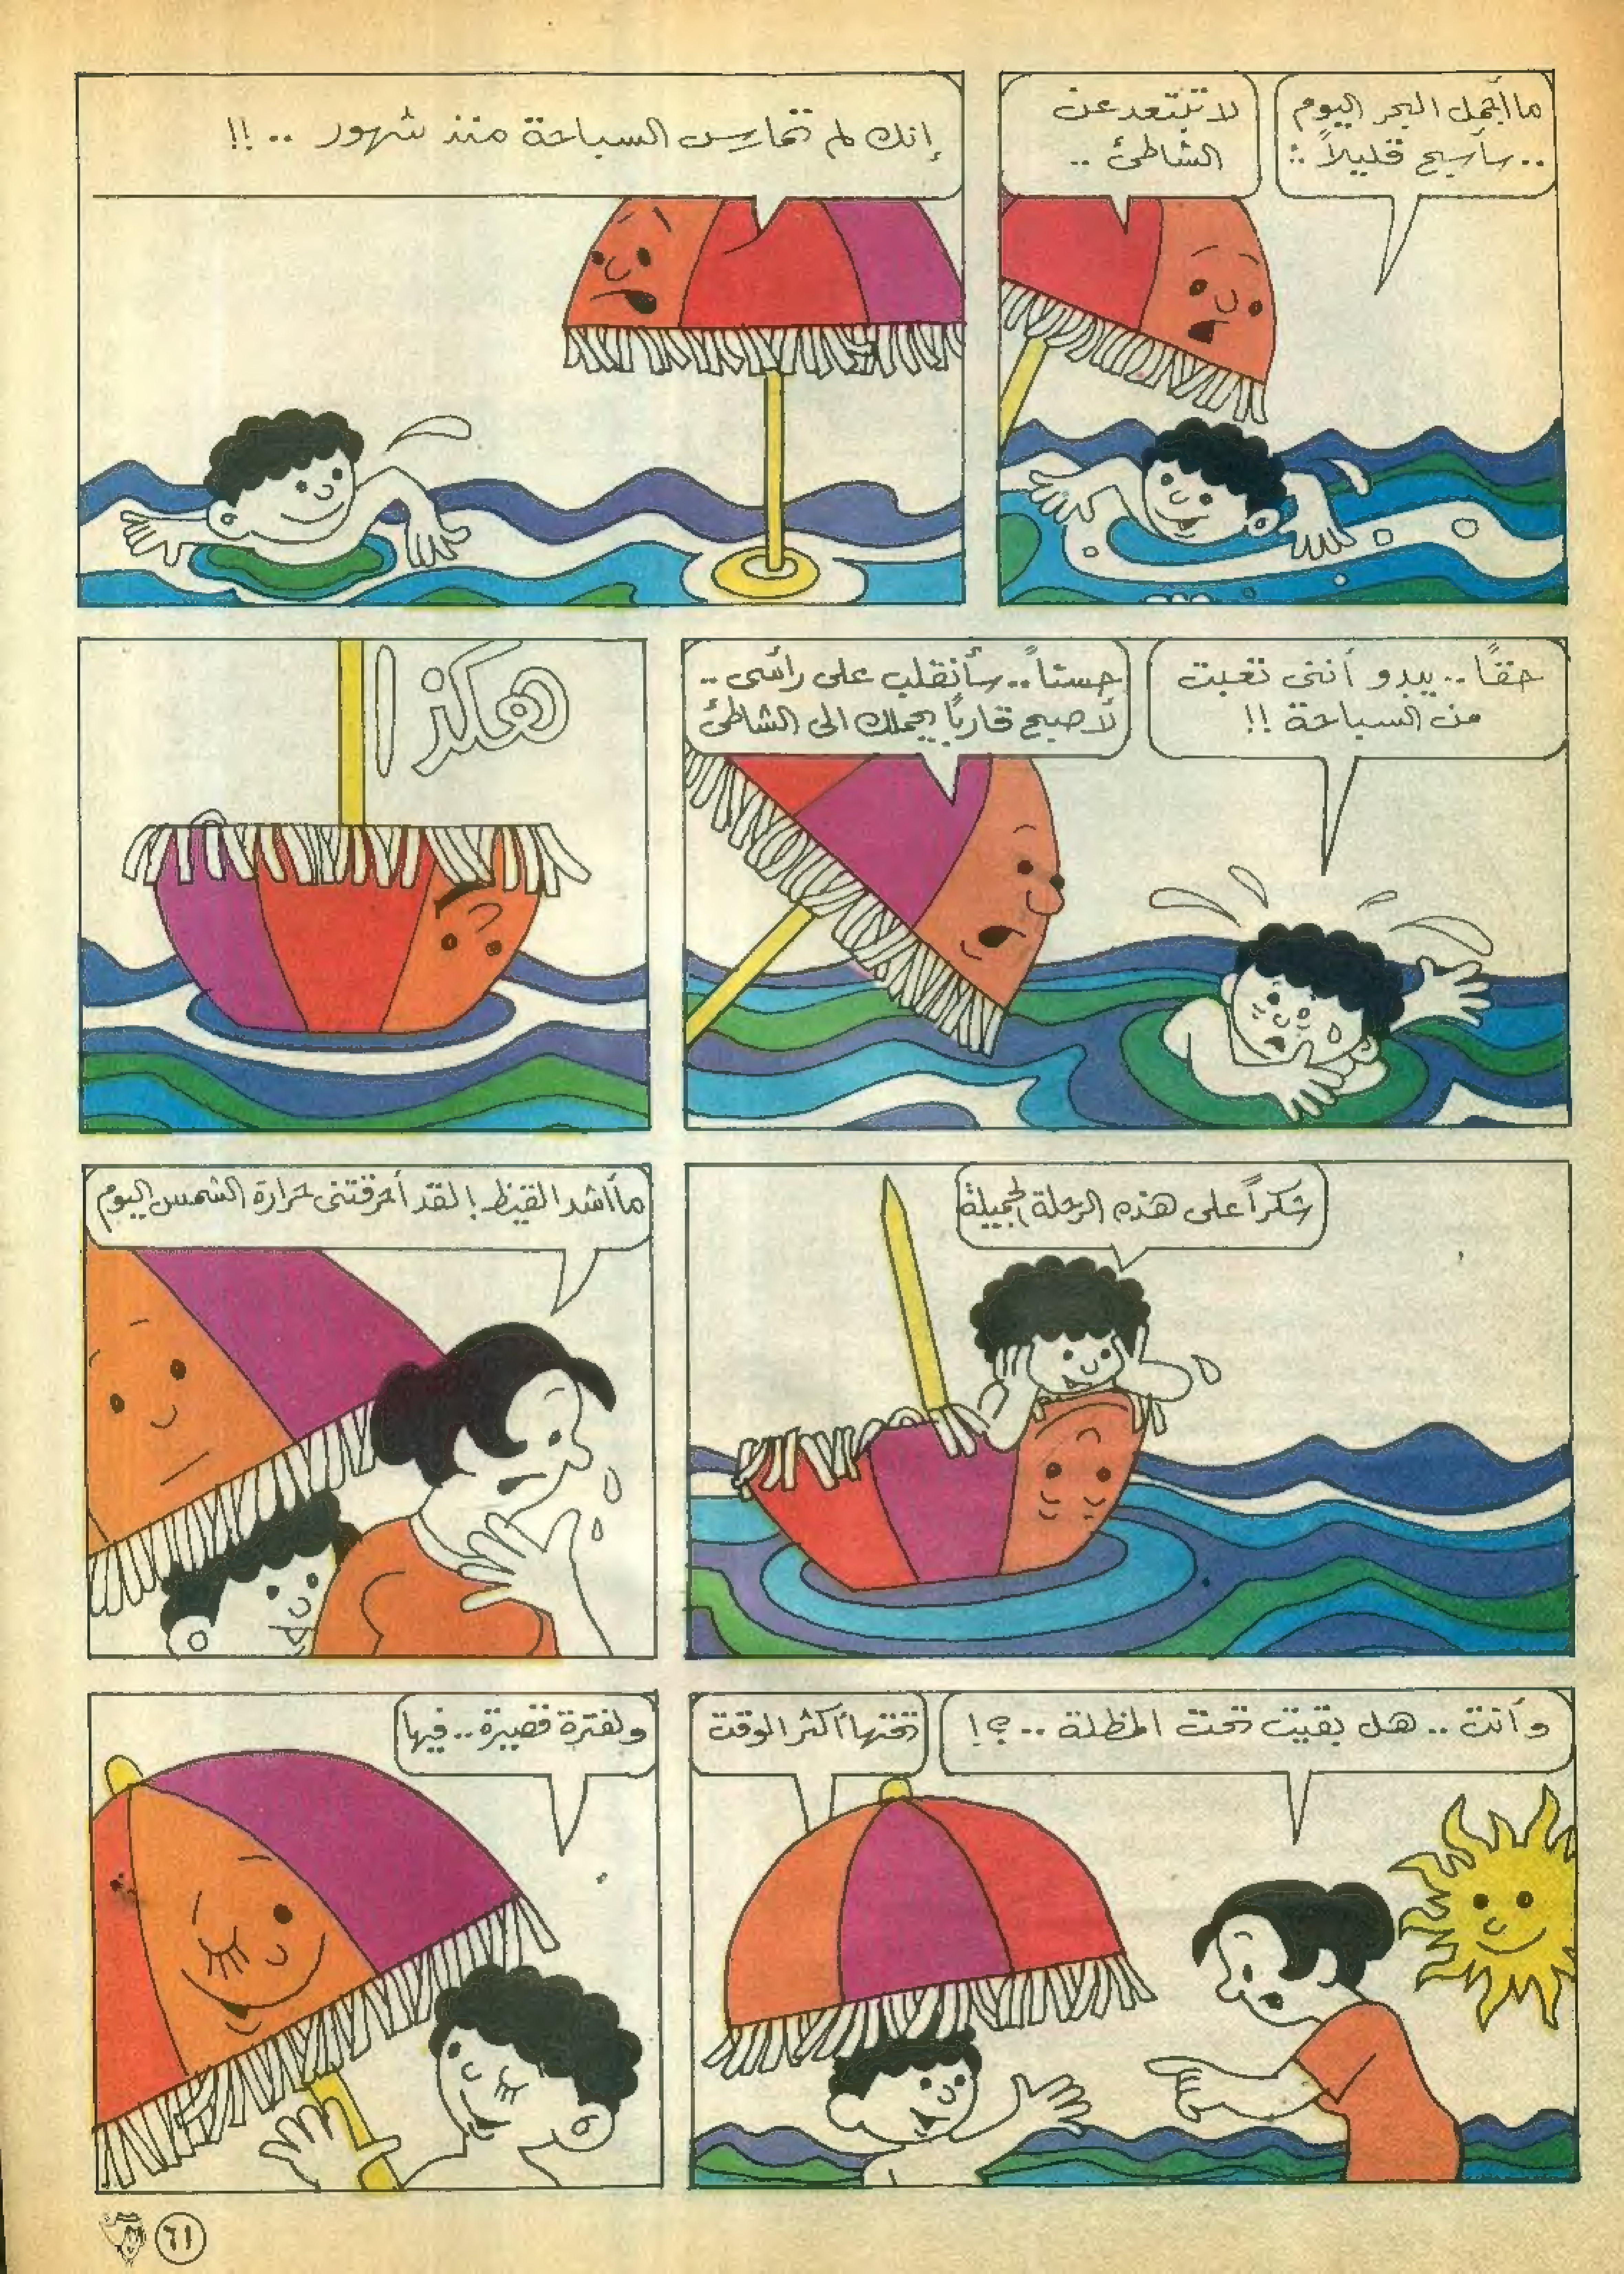 ما أجمل البحر اليوم
.. سأسبح قليلاً ..
لا تبتعد عن
الشاطئ ..
إنك لم تمارس السباحة منذ شهور .. !!
حقاً .. يبدو أنني تعبت
من السباحة !!
حسناً .. سأنقلب على رأسي ..
لأصبح قارباً يحملك الى الشاطئ
هكذا
شكراً على هذه الرحلة الجميلة
ما أشد القيظ ! لقد أحرقتني حرارة الشمس اليوم
وأنت .. هل بقيت تحت المظلة .. ؟!
تحتها أكثر الوقت
ولفترة قصيرة .. فيها
٦١